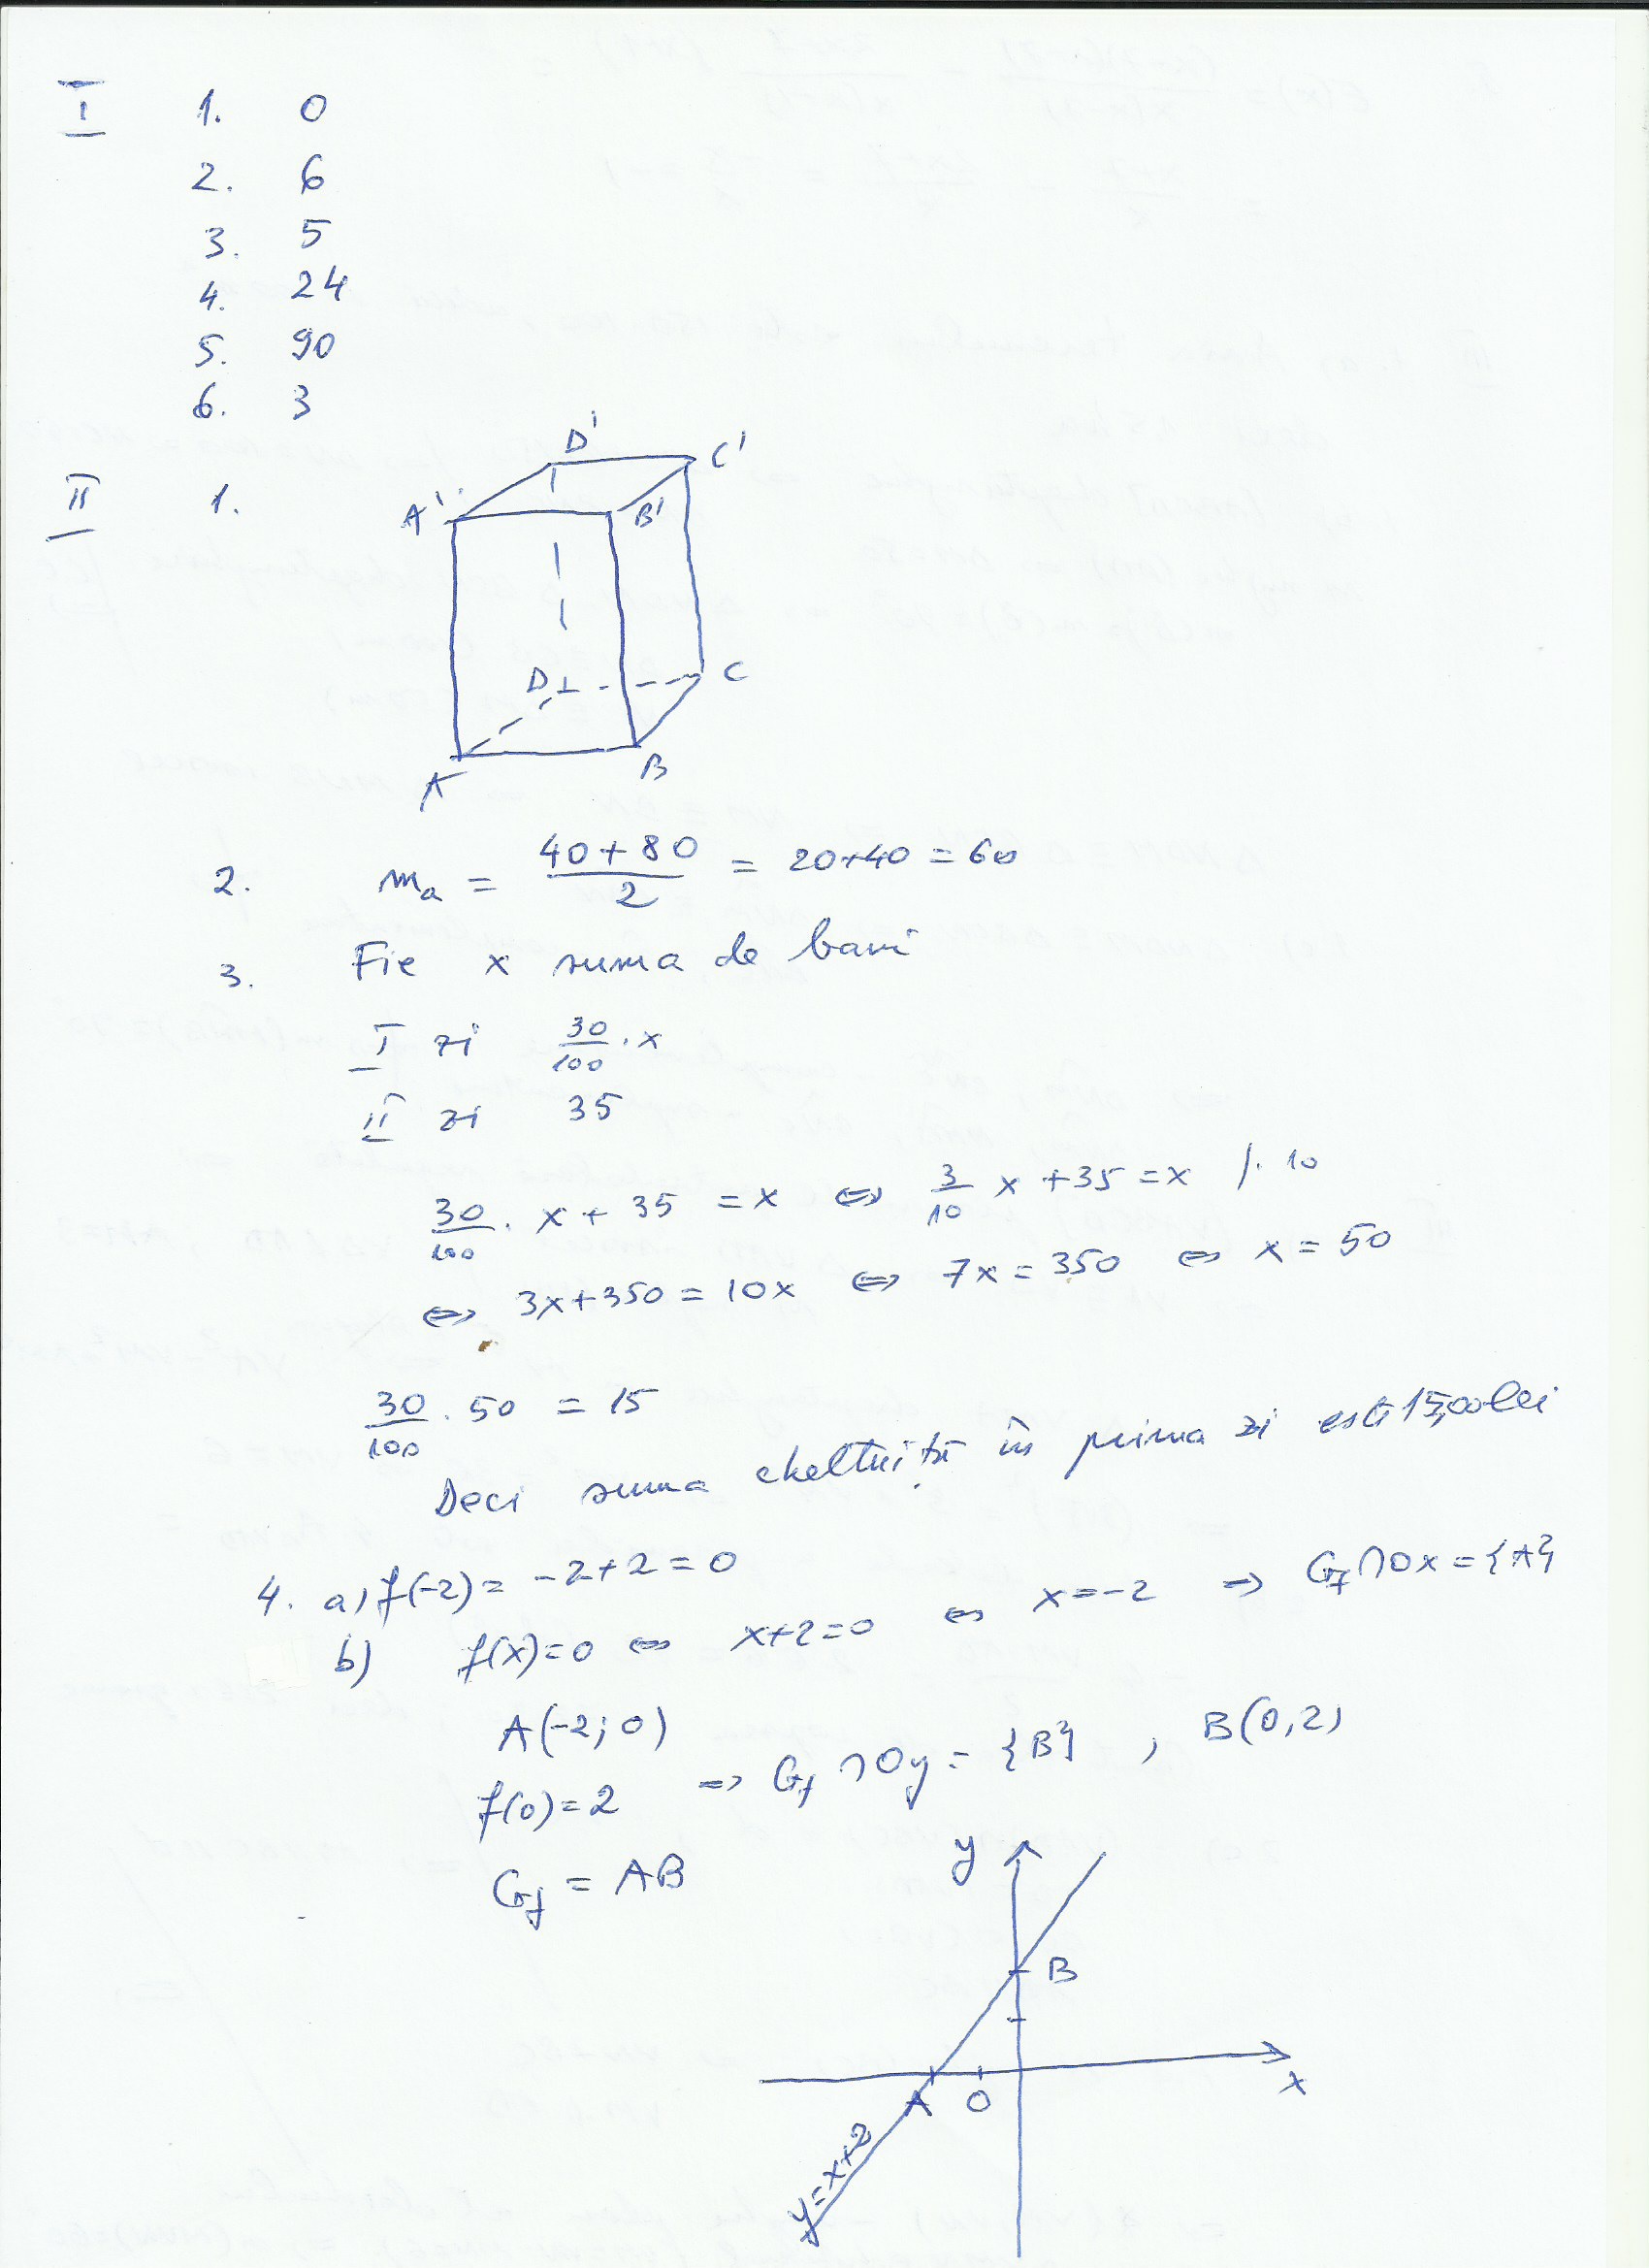 I 1. 0
2. 6
3. 5
4. 24
5. 90
6. 3
II 1.
D' C'
A' B'
D C
A B
2. m_a = (40+80)/2 = 20+40 = 60
3. Fie x suma de bani
I zi 30/100 · x
II zi 35
30/100 · x + 35 = x ⇔ 3/10 x + 35 = x /· 10
⇔ 3x+350 = 10x ⇔ 7x = 350 ⇔ x = 50
30/100 · 50 = 15
Deci suma cheltuită în prima zi este 15,00 lei
4. a) f(-2) = -2+2 = 0
b) f(x)=0 ⇔ x+2=0 ⇔ x=-2 ⇒ G_f ∩ Ox = {A}
A(-2; 0)
f(0)=2 ⇒ G_f ∩ Oy = {B} , B(0,2)
G_f = AB
y
B
x
A O
y=x+2